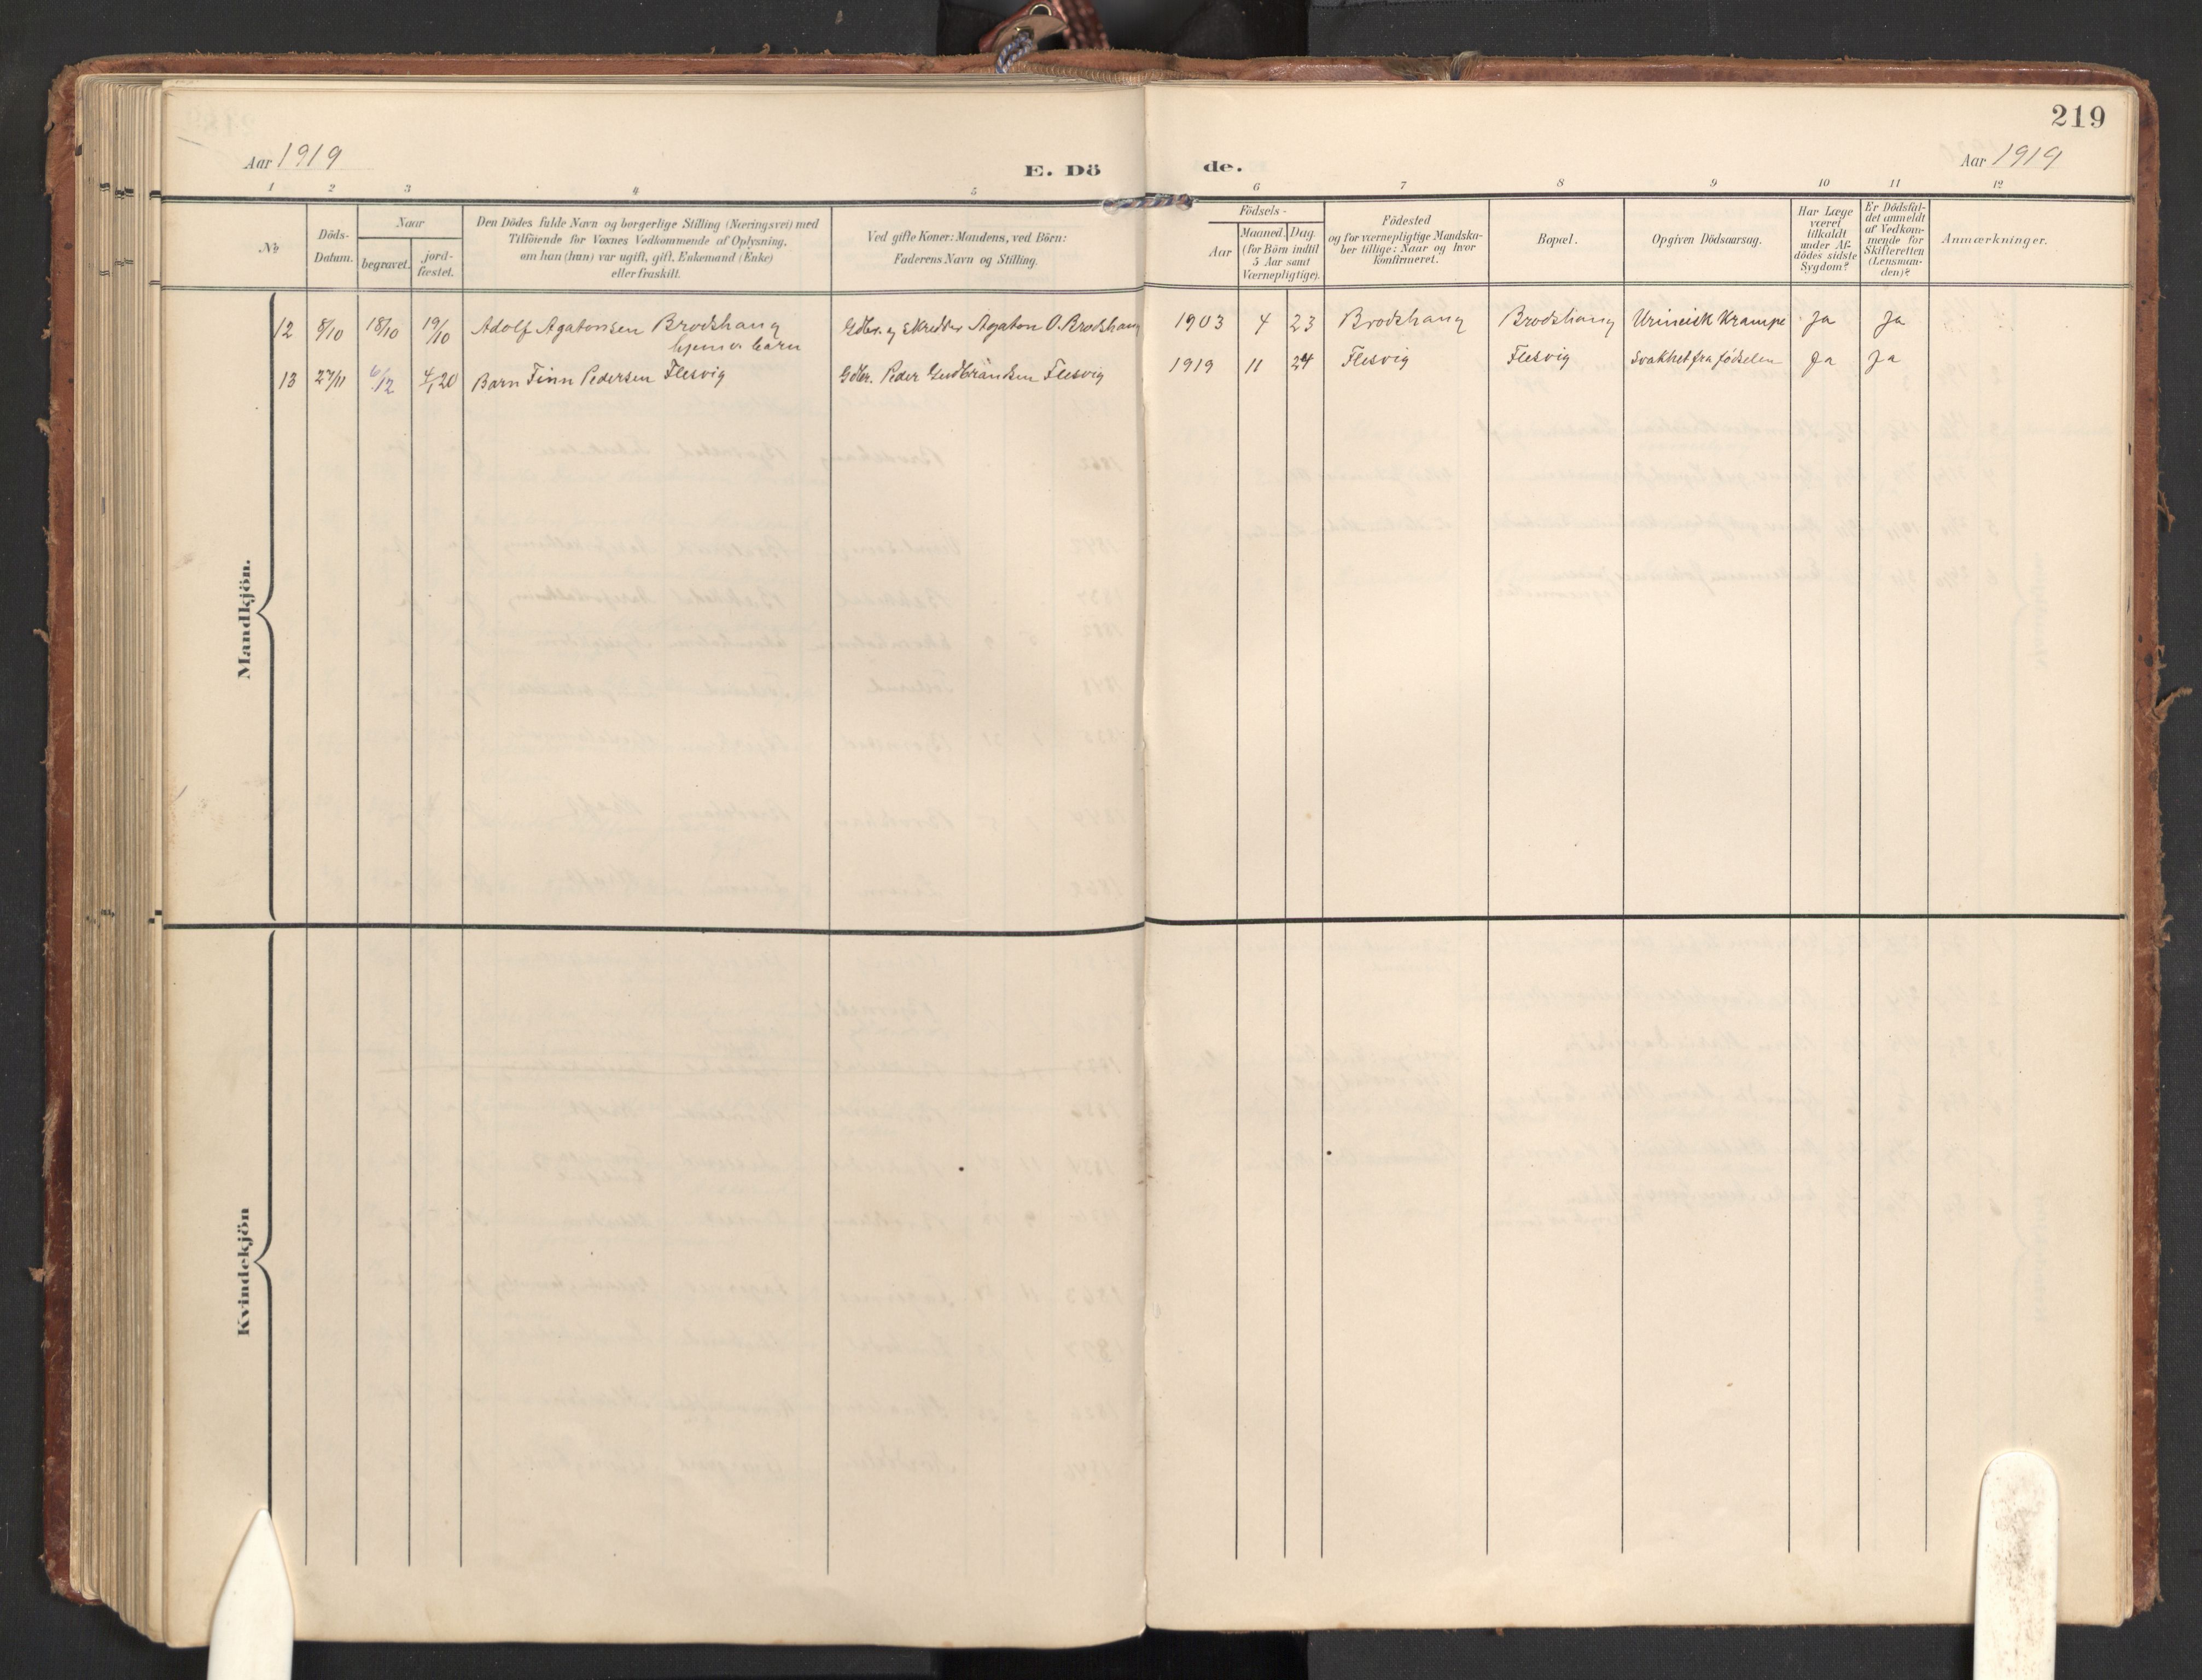 219
Aar 1919
E. Dö
de.
Aar 1919
1 2 3 4 5 6 7 8 9 10 11 12
No.
Döds-
Datum.
Naar
begravet.
jord-
fæstet.
Den Dödes fulde Navn og borgerlige Stilling (Næringsvei) med
Tilföiende for Voxnes Vedkommende af Oplysning,
om han (hun) var ugift, gift, Enkemand (Enke)
eller fraskilt.
Ved gifte Koner: Mandens, ved Börn:
Faderens Navn og Stilling.
Födsels-
Aar
Maaned. Dag.
(for Börn indtil
5 Aar samt
Værnepligtige).
Födested
og for værnepligtige Mandska-
ber tillige: Naar og hvor
konfirmeret.
Bopæl.
Opgiven Dödsaarsag.
Har Læge
været
tilkaldt
under Af-
dödes sidste
Sygdom?
Er Dödsfal-
det anmeldt
af Vedkom-
mende for
Skifteretten
(Lensman-
den)?
Anmærkninger.
Mandkjön.
12 8/10 18/10 19/10 Adolf Agatonsen Brodshaug Gdbr. og skredder Agaton O. Brodshaug 1903 4 23 Brodshaug Brodshaug Urineisk Krampe Ja Ja
hjemv. barn
13 27/11 6/12 4/1 20 Barn Finn Pedersen Flesvig Gdbr. Peder Gudbrandsen Flesvig 1919 11 24 Flesvig Flesvig Svakhet fra fødselen Ja Ja
Kvindekjön